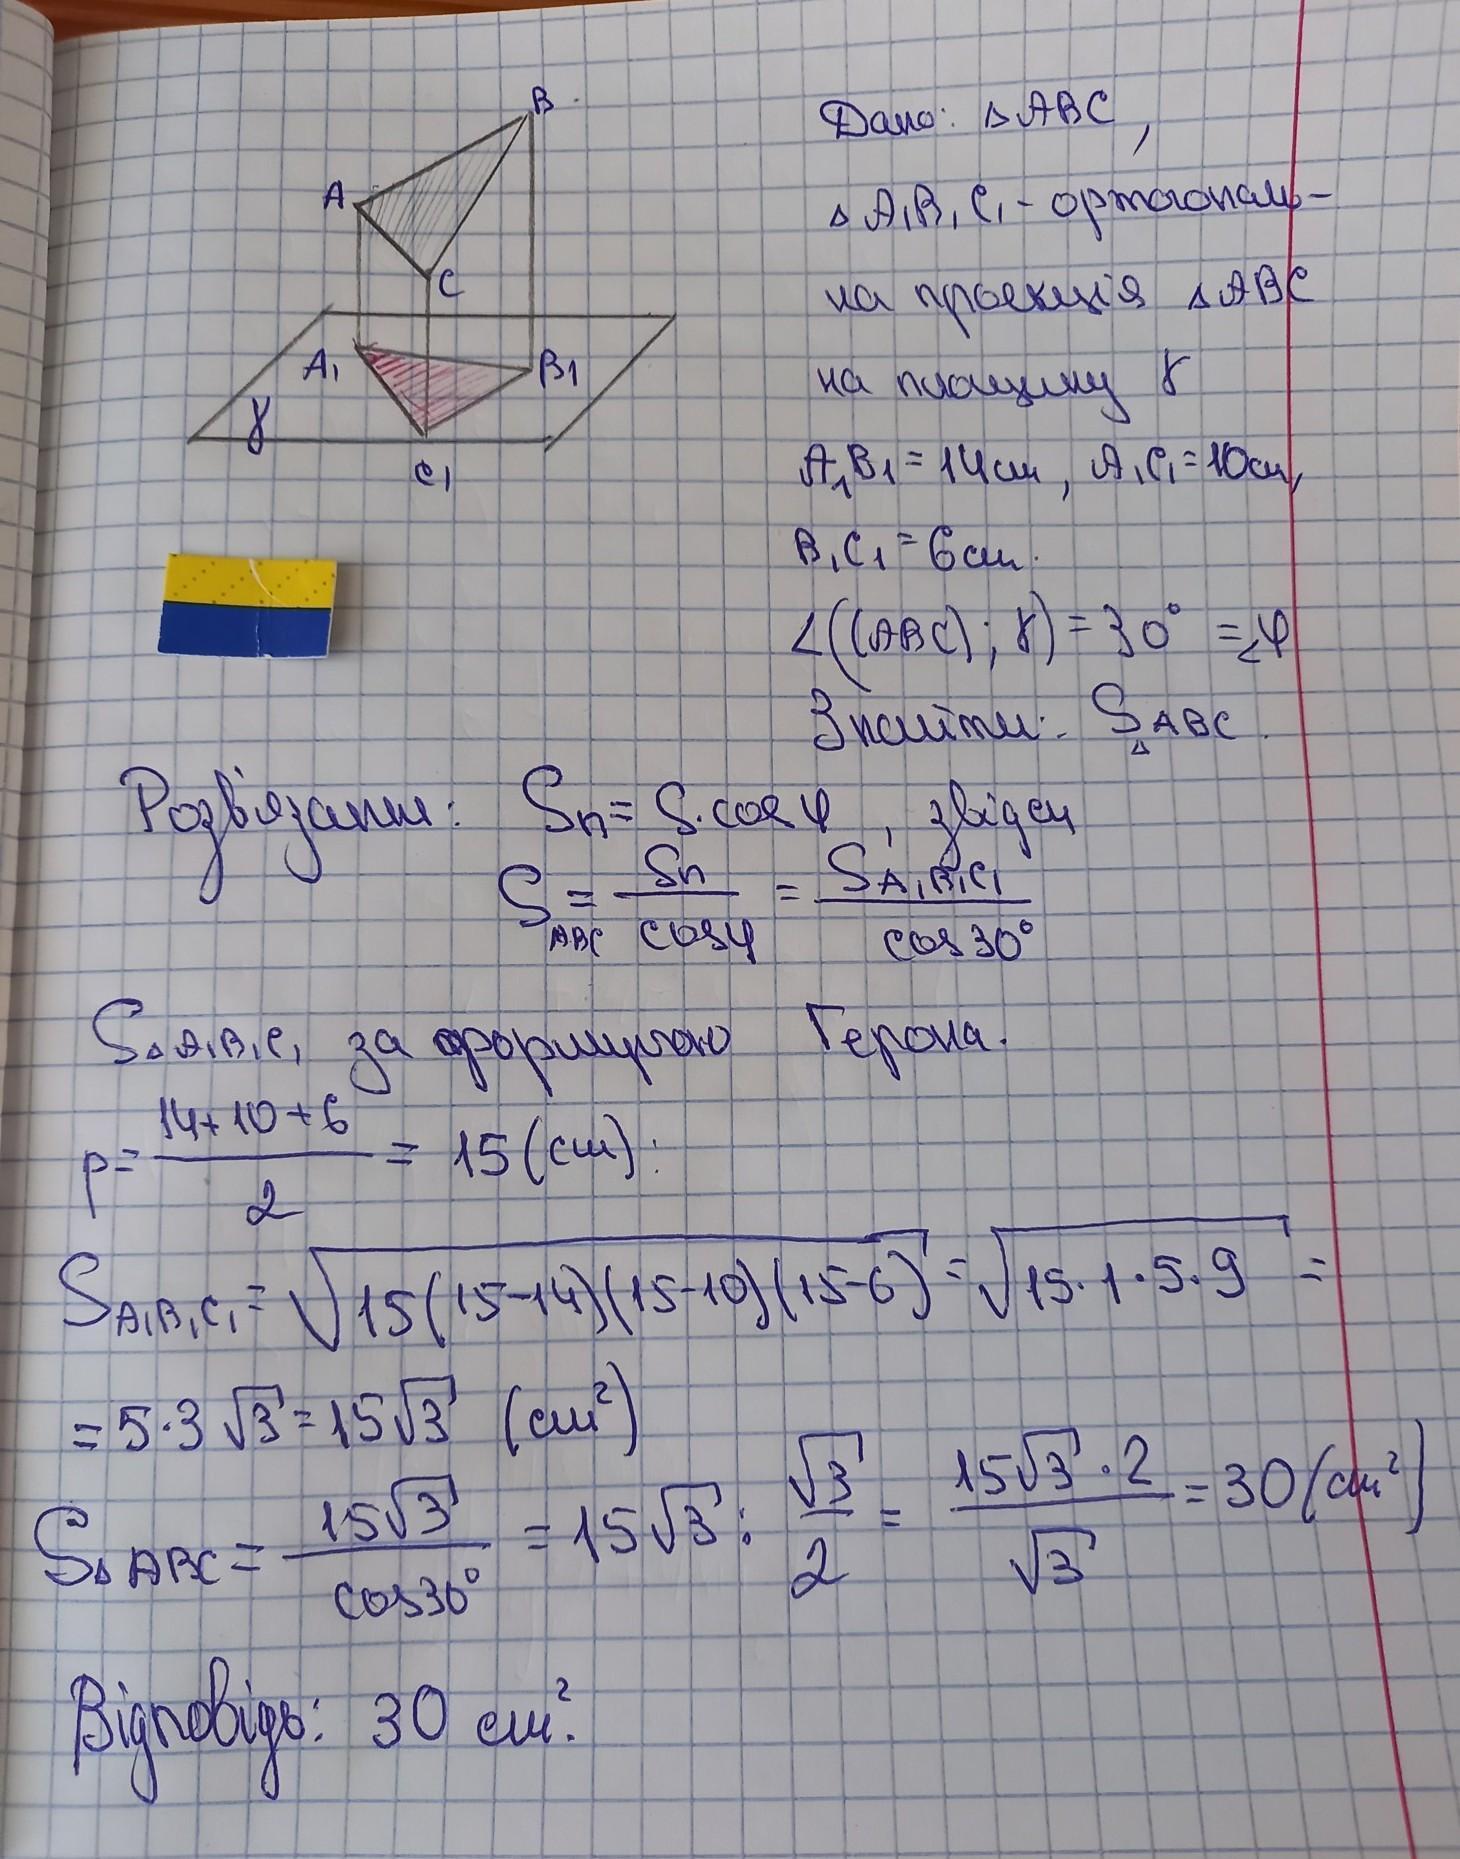 B
A
C
A₁
B₁
γ
C₁
Дано: △ABC,
△A₁B₁C₁ - ортогональ-
на проекція △ABC
на площину γ
A₁B₁ = 14см, A₁C₁ = 10см,
B₁C₁ = 6см.
∠((ABC); γ) = 30° = ∠φ
Знайти: S△ABC.
Розв'язання: Sп = S·cosφ, звідси
S ABC = Sп/cosφ = S A₁B₁C₁/cos30°
S△A₁B₁C₁ за формулою Герона.
p = (14+10+6)/2 = 15 (см):
S A₁B₁C₁ = √(15(15-14)(15-10)(15-6)) = √(15·1·5·9) =
= 5·3√3 = 15√3 (см²)
S△ABC = 15√3/cos30° = 15√3 : √3/2 = 15√3·2/√3 = 30 (см²)
Відповідь: 30 см².